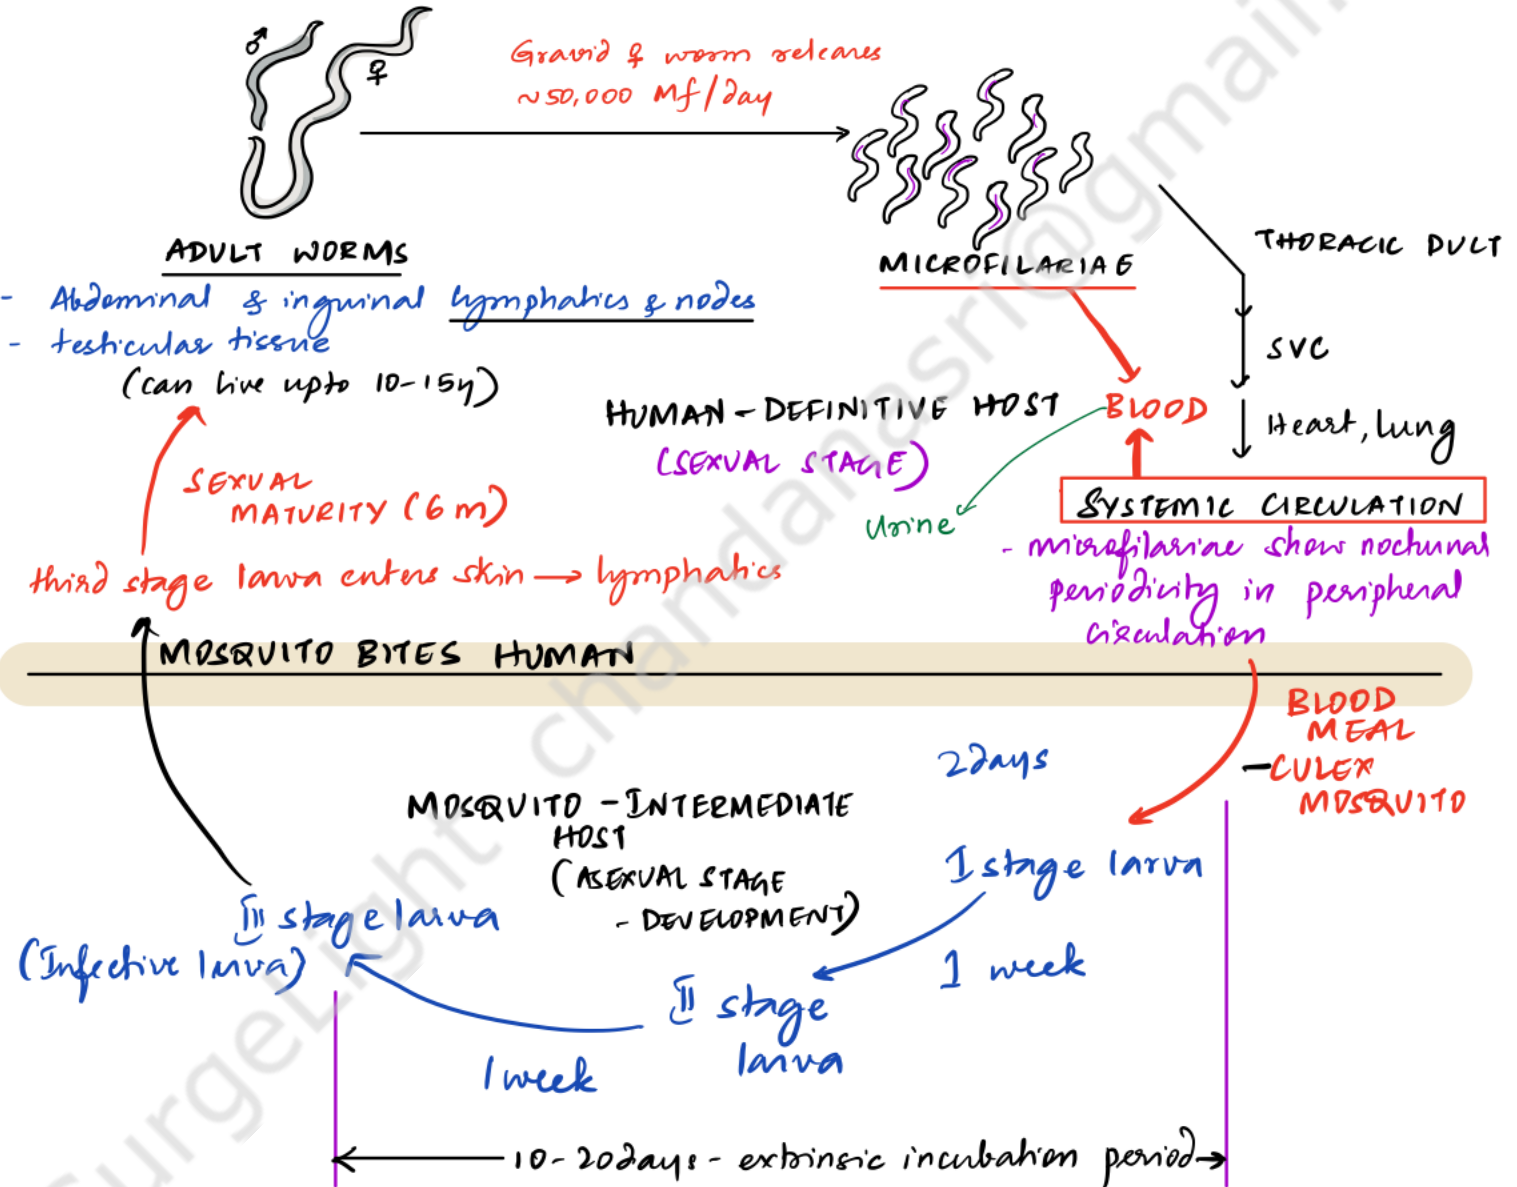 ♂
♀
Gravid ♀ worm releases
~50,000 Mf/day
ADULT WORMS
- Abdominal & inguinal lymphatics & nodes
- testicular tissue
(can live upto 10-15y)
MICROFILARIAE
THORACIC DUCT
SVC
Heart, lung
HUMAN - DEFINITIVE HOST
(SEXUAL STAGE)
BLOOD
Urine
SYSTEMIC CIRCULATION
- microfilariae show nocturnal
periodicity in peripheral
circulation
SEXUAL
MATURITY (6 m)
third stage larva enters skin → lymphatics
MOSQUITO BITES HUMAN
BLOOD
MEAL
- CULEX
MOSQUITO
2 days
MOSQUITO - INTERMEDIATE
HOST
(ASEXUAL STAGE
- DEVELOPMENT)
I stage larva
1 week
II stage
larva
1 week
III stage larva
(Infective larva)
10-20 days - extrinsic incubation period
SurgeLight chandanasri@gmail